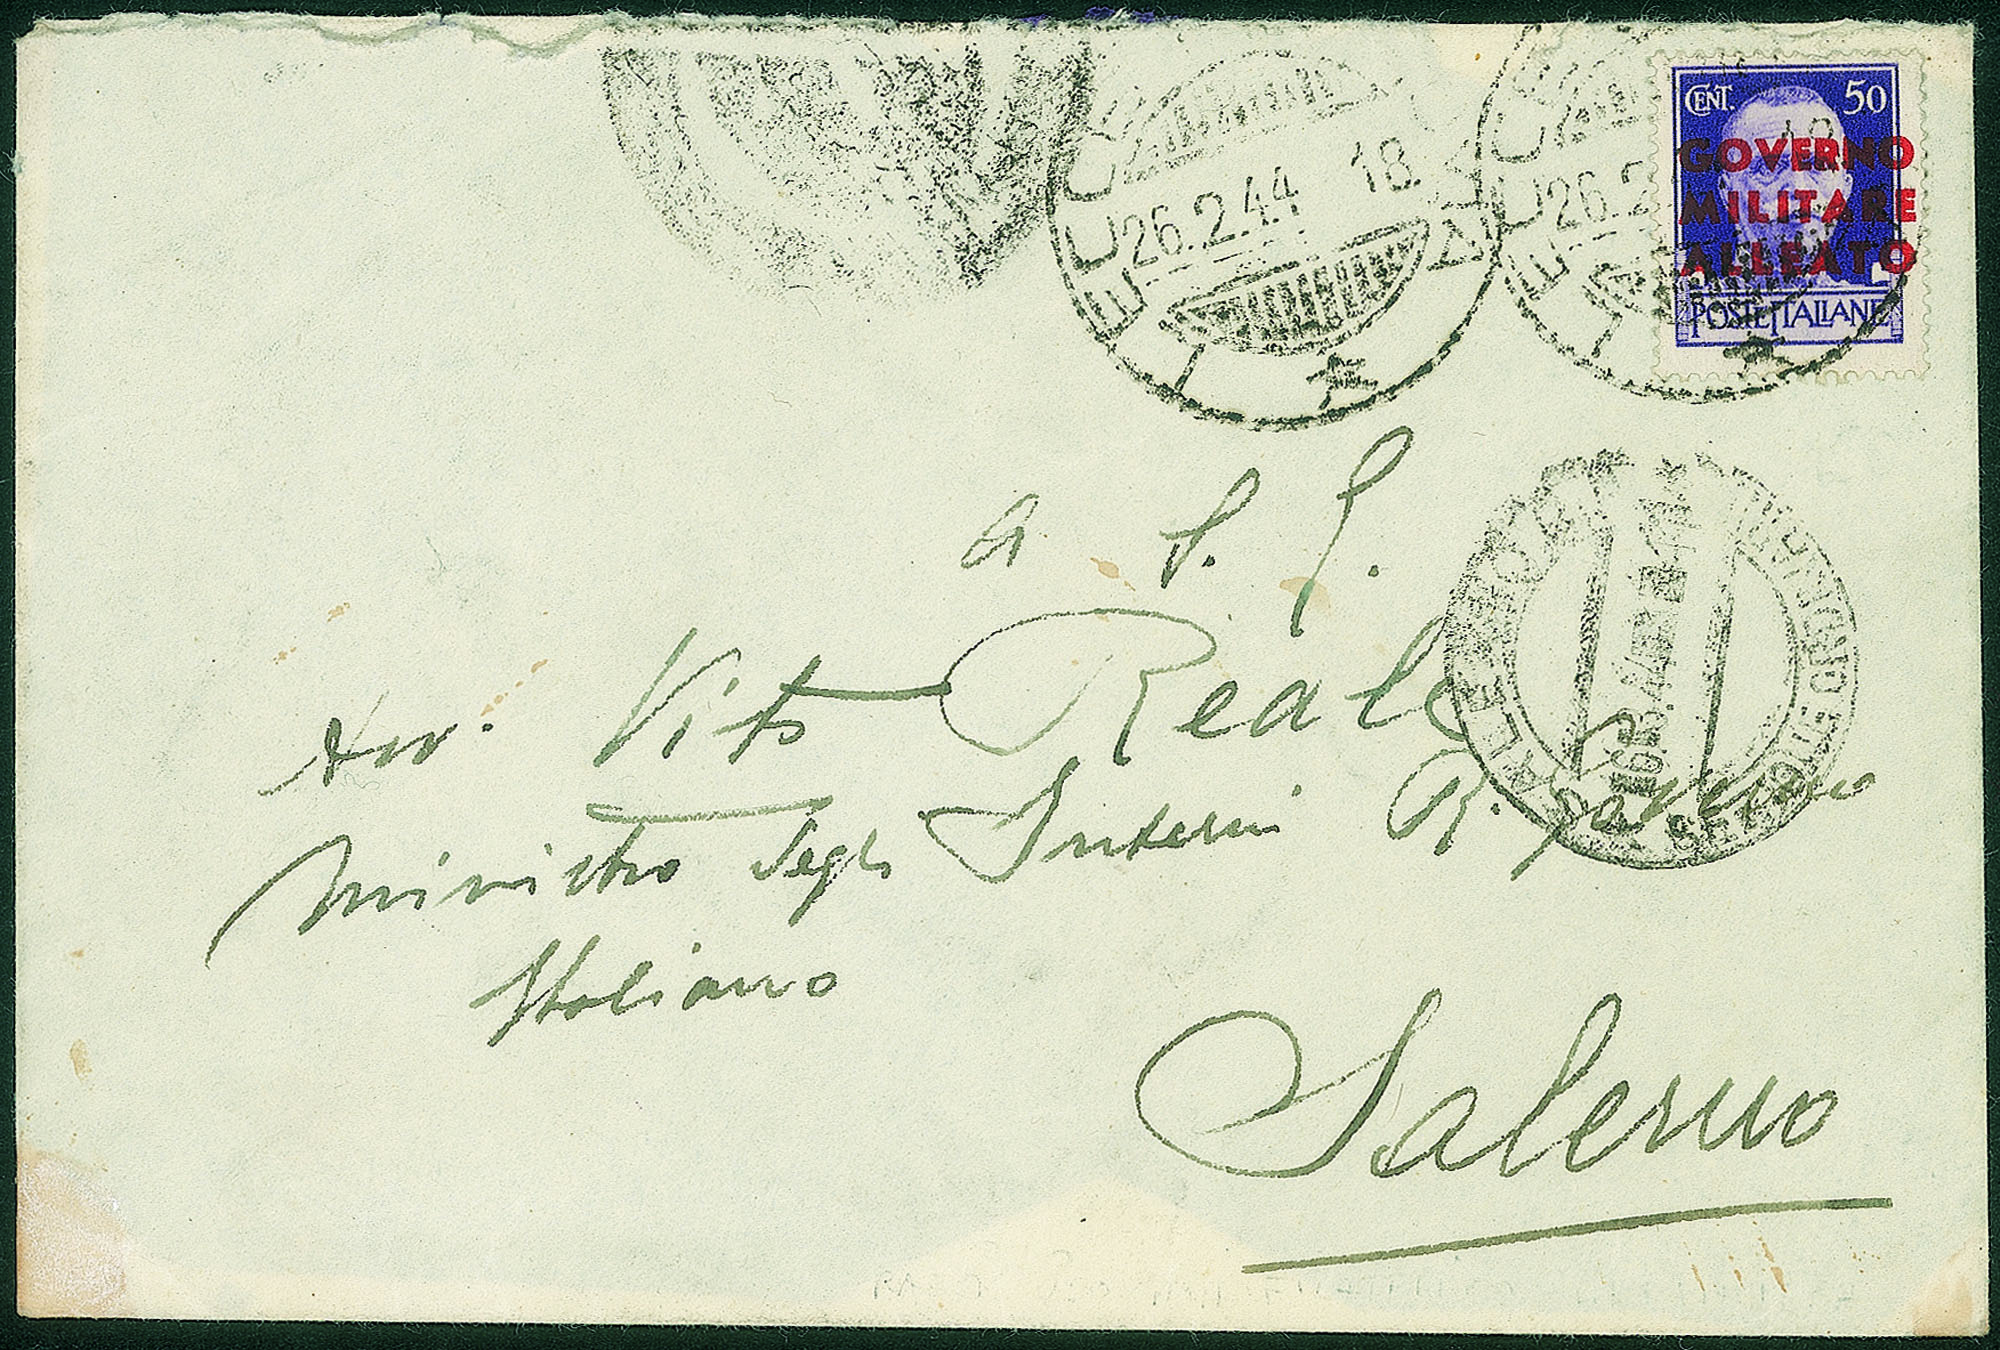 CENT. 50
GOVERNO
MILITARE
ALLEATO
POSTE ITALIANE
LECCE
26.2.44 18
26.2
a S. E.
Avv. Vito Reale
Ministro degli Interni R. Governo
Italiano
Salerno